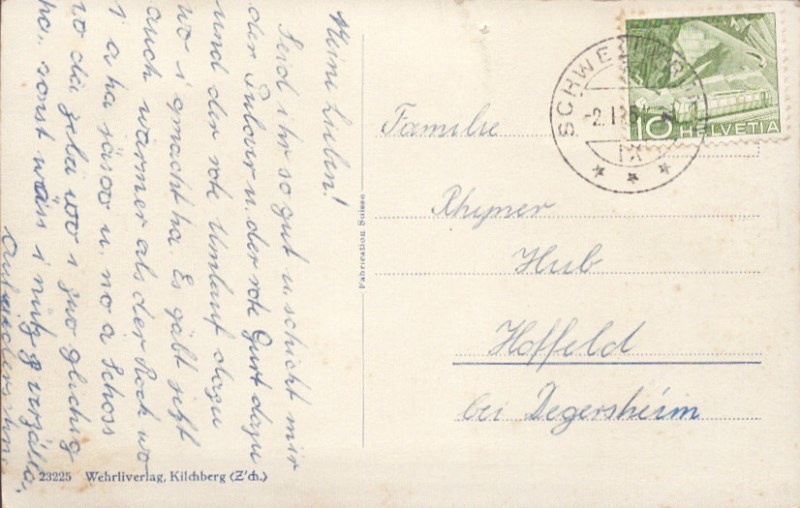 Meine Lieben!
Seid ihr so gut u. schickt mir
der Pulover u. der rote Gurt dazu
und der rote Umlauf dazu
wo i gmacht ha. Es gäbt jetzt
auch wärmer als der Rock wo
i a ha u. no ä Schoss
wo da i zuo glichig
ha, sonst wän i nütz
23225 Wehrliverlag, Kilchberg (Z'ch.)
Fabrication Suisse
SCHWE
-2.I
IX
10 HELVETIA
Familie
Rhyner
Hub
Hoffeld
bei Degersheim